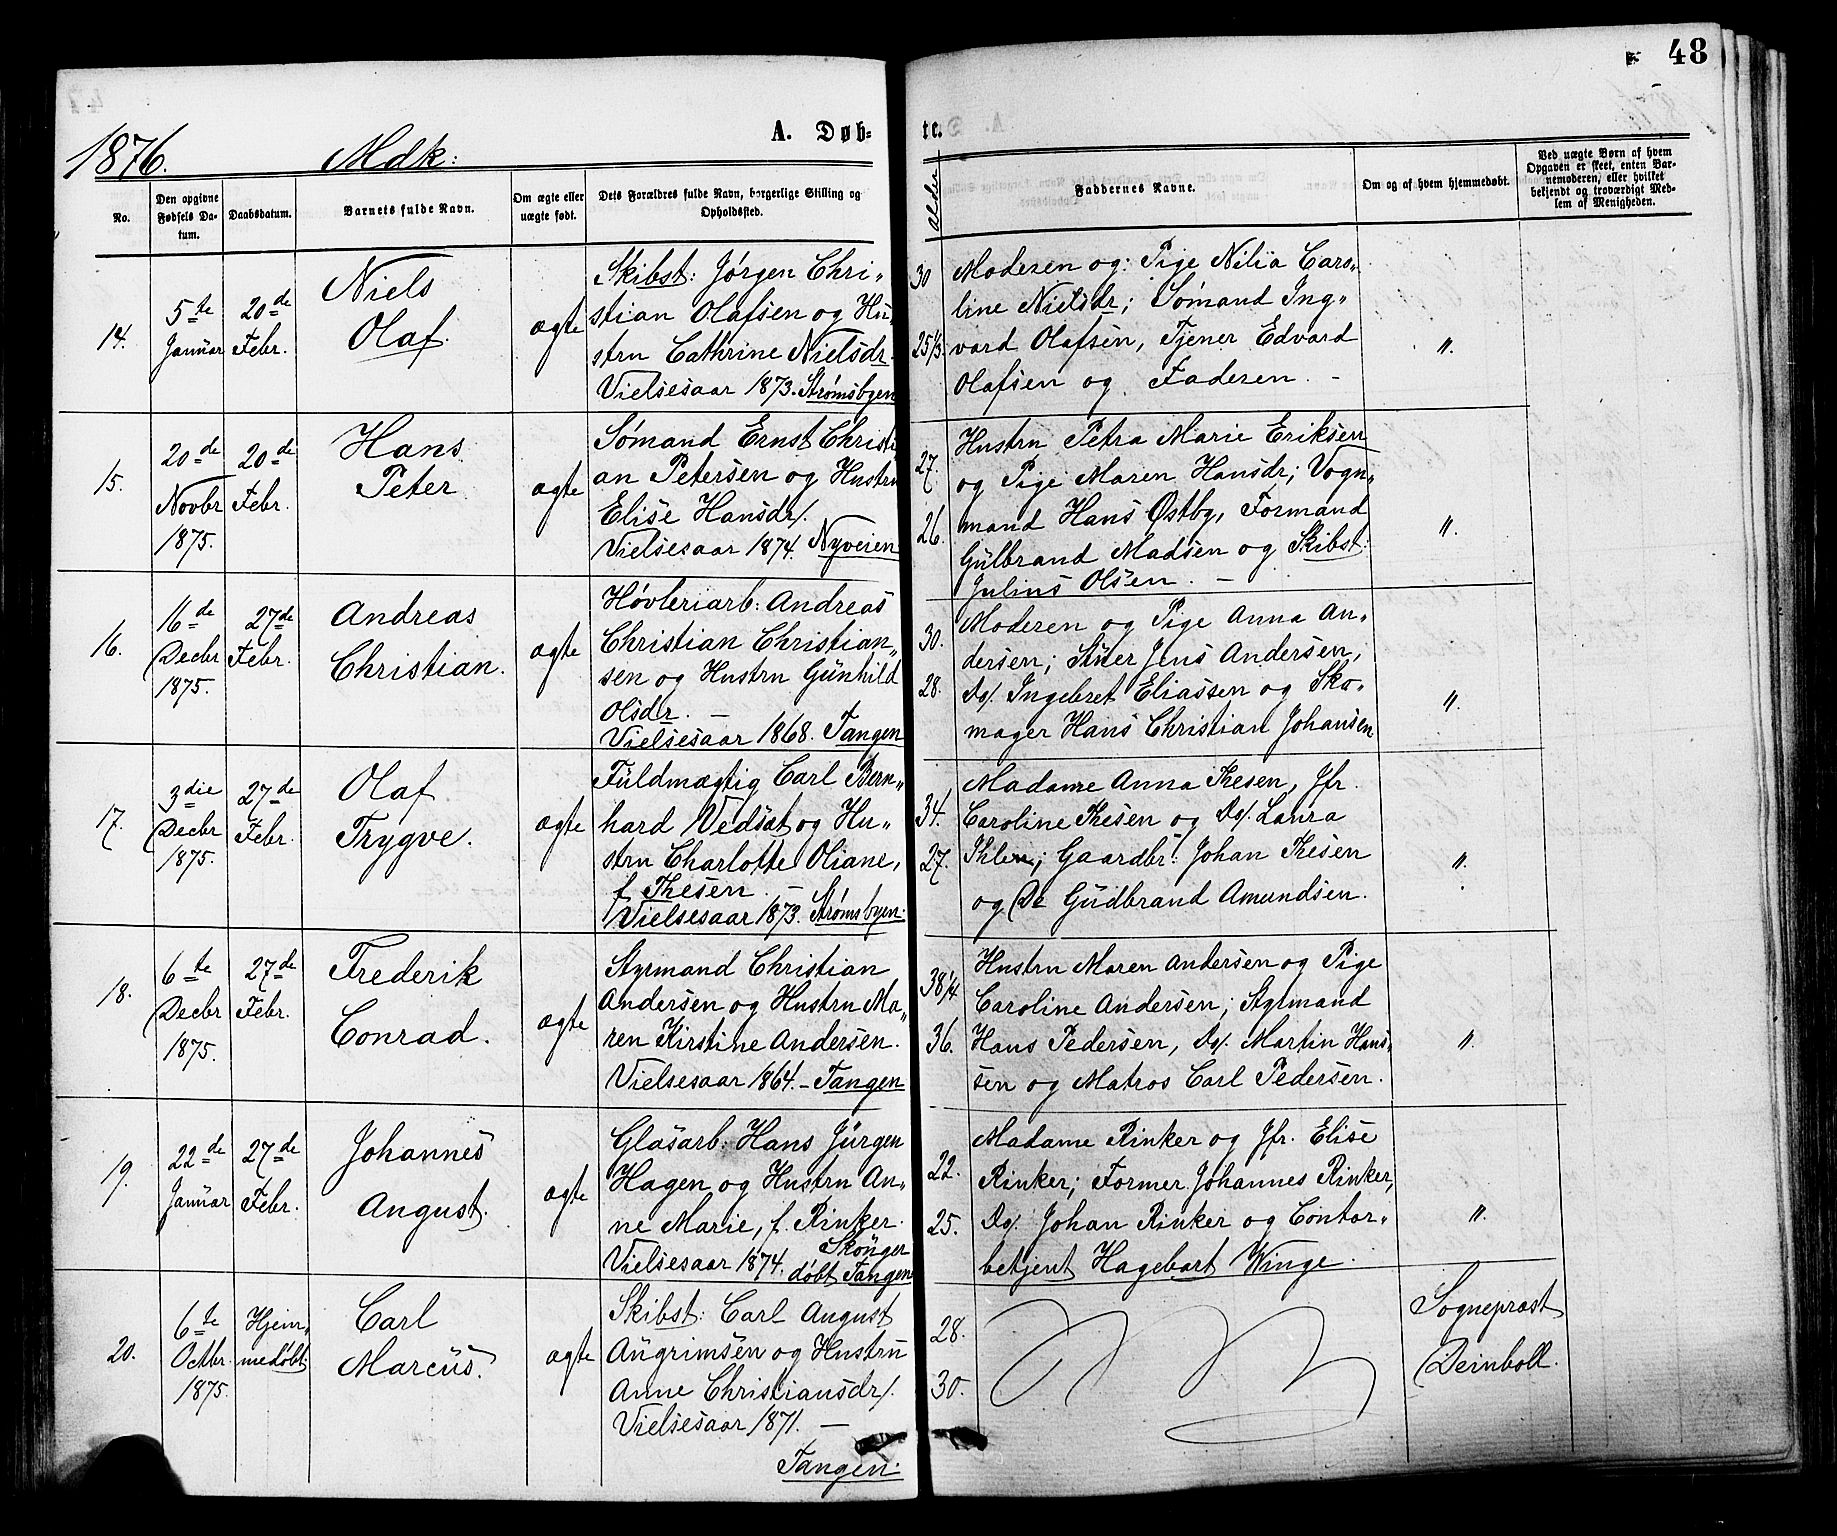 48
1876. Mdk: A. Døb- te.
No.
Den opgivne Fødsels Da-
tum.
Daabsdatum.
Barnets fulde Navn.
Om ægte eller
uægte født.
Dets Forældres fulde Navn, borgerlige Stilling og
Opholdssted.
Alder
Faddernes Navne.
Om og af hvem hjemmedøbt.
Ved uægte Børn af hvem
Opgaven er skeet, enten Bar-
nemoderen, eller hvilket
bekjendt og troværdigt Med-
lem af Menigheden.
14.
5te
Januar
20de
Febr.
Niels
Olaf.
ægte
Skibst: Jørgen Chri-
stian Olafsen og Hu-
stru Cathrine Nielsdr.
Vielsesaar 1873. Strømsbyen
30
25 1/3.
Moderen og: Pige Nilia Caro-
line Nielsdr; Sømand Ing-
vard Olafsen, Tjener Edvard
Olafsen og Faderen. -
"
15.
20de
Novbr
1875.
20de
Febr.
Hans
Peter
ægte
Sømand Ernst Christi
an Petersen og Hustru
Elise Hansdr/.
Vielsesaar 1874. Nyveien
27.
26.
Hustru Petra Marie Eriksen
og Pige Maren Hansdr; Vogn-
mand Hans Østby, Formand
Gulbrand Madsen og Skibst:
Julius Olsen. -
"
16.
16de
Decbr
1875.
27de
Febr.
Andreas
Christian.
ægte
Høvleriarb: Andreas
Christian Christian-
sen og Hustru Gunhild
Olsdr. -
Vielsesaar 1868. Tangen
30.
28.
Moderen og Pige Anna An-
dersen; Stuer Jens Andersen,
Do/. Ingebret Eliassen og Sko-
mager Hans Christian Johansen
"
17.
3die
Decbr
1875.
27de
Febr.
Olaf
Trygve.
ægte
Fuldmægtig Carl Bern-
hard Vedsæt og Hu-
stru Charlotte Oliane,
f. Thesen. -
Vielsesaar 1873. Strømsbyen.
34.
27.
Madame Anna Thesen, Jfr.
Caroline Thesen og Do/. Laura
Ihlen; Gaardbr. Johan Thesen
og Do Gudbrand Amundsen.
"
18.
6te
Decbr
1875.
27de
Febr.
Frederik
Conrad.
ægte
Styrmand Christian
Andersen og Hustru Ma-
ren Kirstine Andersen.
Vielsesaar 1864. - Tangen
38 1/4
36.
Hustru Maren Andersen og Pige
Caroline Andersen; Styrmand
Hans Pedersen, Do/. Martin Hans-
sen og Matros Carl Pedersen.
"
19.
22de
Januar
27de
Febr.
Johannes
August.
ægte
Glasarb: Hans Jürgen
Hagen og Hustru An-
ne Marie, f. Rinker.
Vielsesaar 1874.
døbt Tangen
22.
25.
Madame Rinker og Jfr. Elise
Rinker; Former Johannes Rinker,
Do/. Johan Rinker og Contor-
betjent Hagebart Winge.
"
20.
6te
Octbr.
1875.
Hjem-
medøbt.
Carl
Marcus.
ægte
Skibst: Carl August
Augrimsen og Hustru
Anne Christiansdr/.
Vielsesaar 1871. -
Tangen.
28.
30.
Sogneprest
Deinboll.